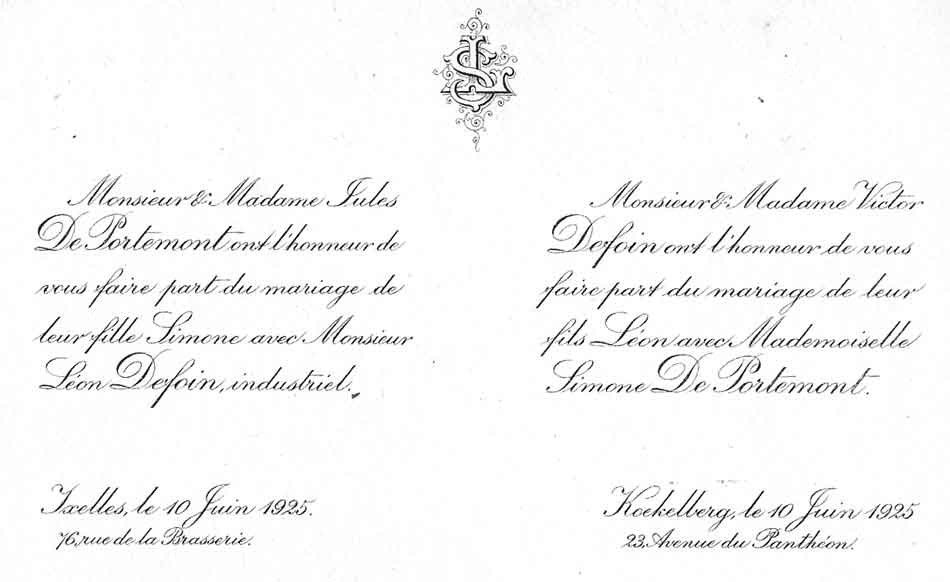 LS
Monsieur & Madame Jules
De Portemont ont l'honneur de
vous faire part du mariage de
leur fille Simone avec Monsieur
Léon Defoin, industriel.
Ixelles, le 10 Juin 1925.
76, rue de la Brasserie.
Monsieur & Madame Victor
Defoin ont l'honneur de vous
faire part du mariage de leur
fils Léon avec Mademoiselle
Simone De Portemont.
Koekelberg, le 10 Juin 1925
23, Avenue du Panthéon.